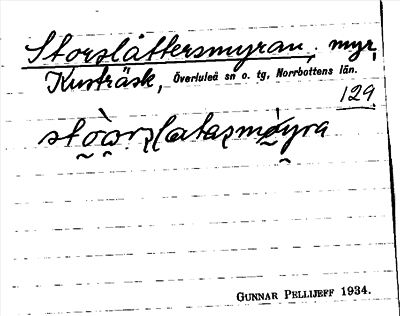 Storslåttersmyran, myr,
Kusträsk, Överluleå sn o. tg, Norrbottens län.
129
GUNNAR PELLIJEFF 1934.